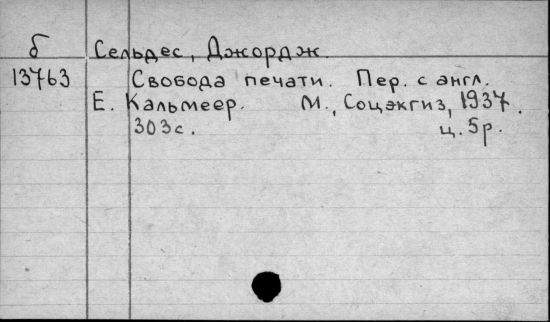 б Сельдес, Джордж.
13763 Свобода печати. Пер. с англ.
Е. Кальмеер. М., Соцэкгиз, 1937.
303с. ц. 5р.